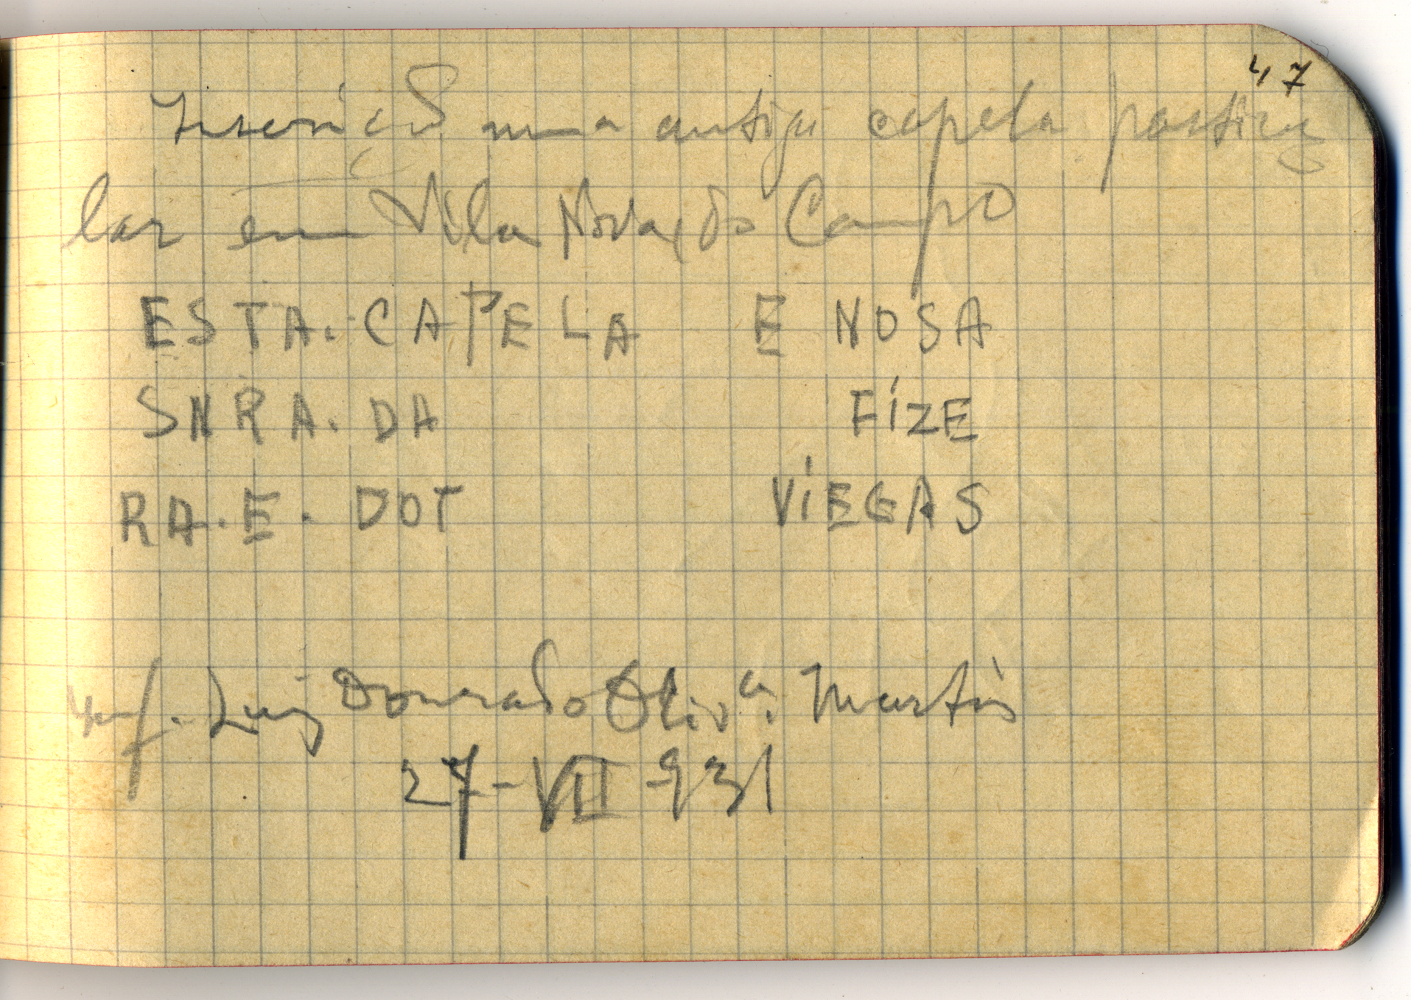 47
Inscrição numa antiga capela particu
lar em Vila Nova do Campo
ESTA. CAPELA E NOSA
SNRA. DA FIZE
RA. E. DOT VIEGAS
inf. Luiz Dourado Olivª. Martins
27-VII-931